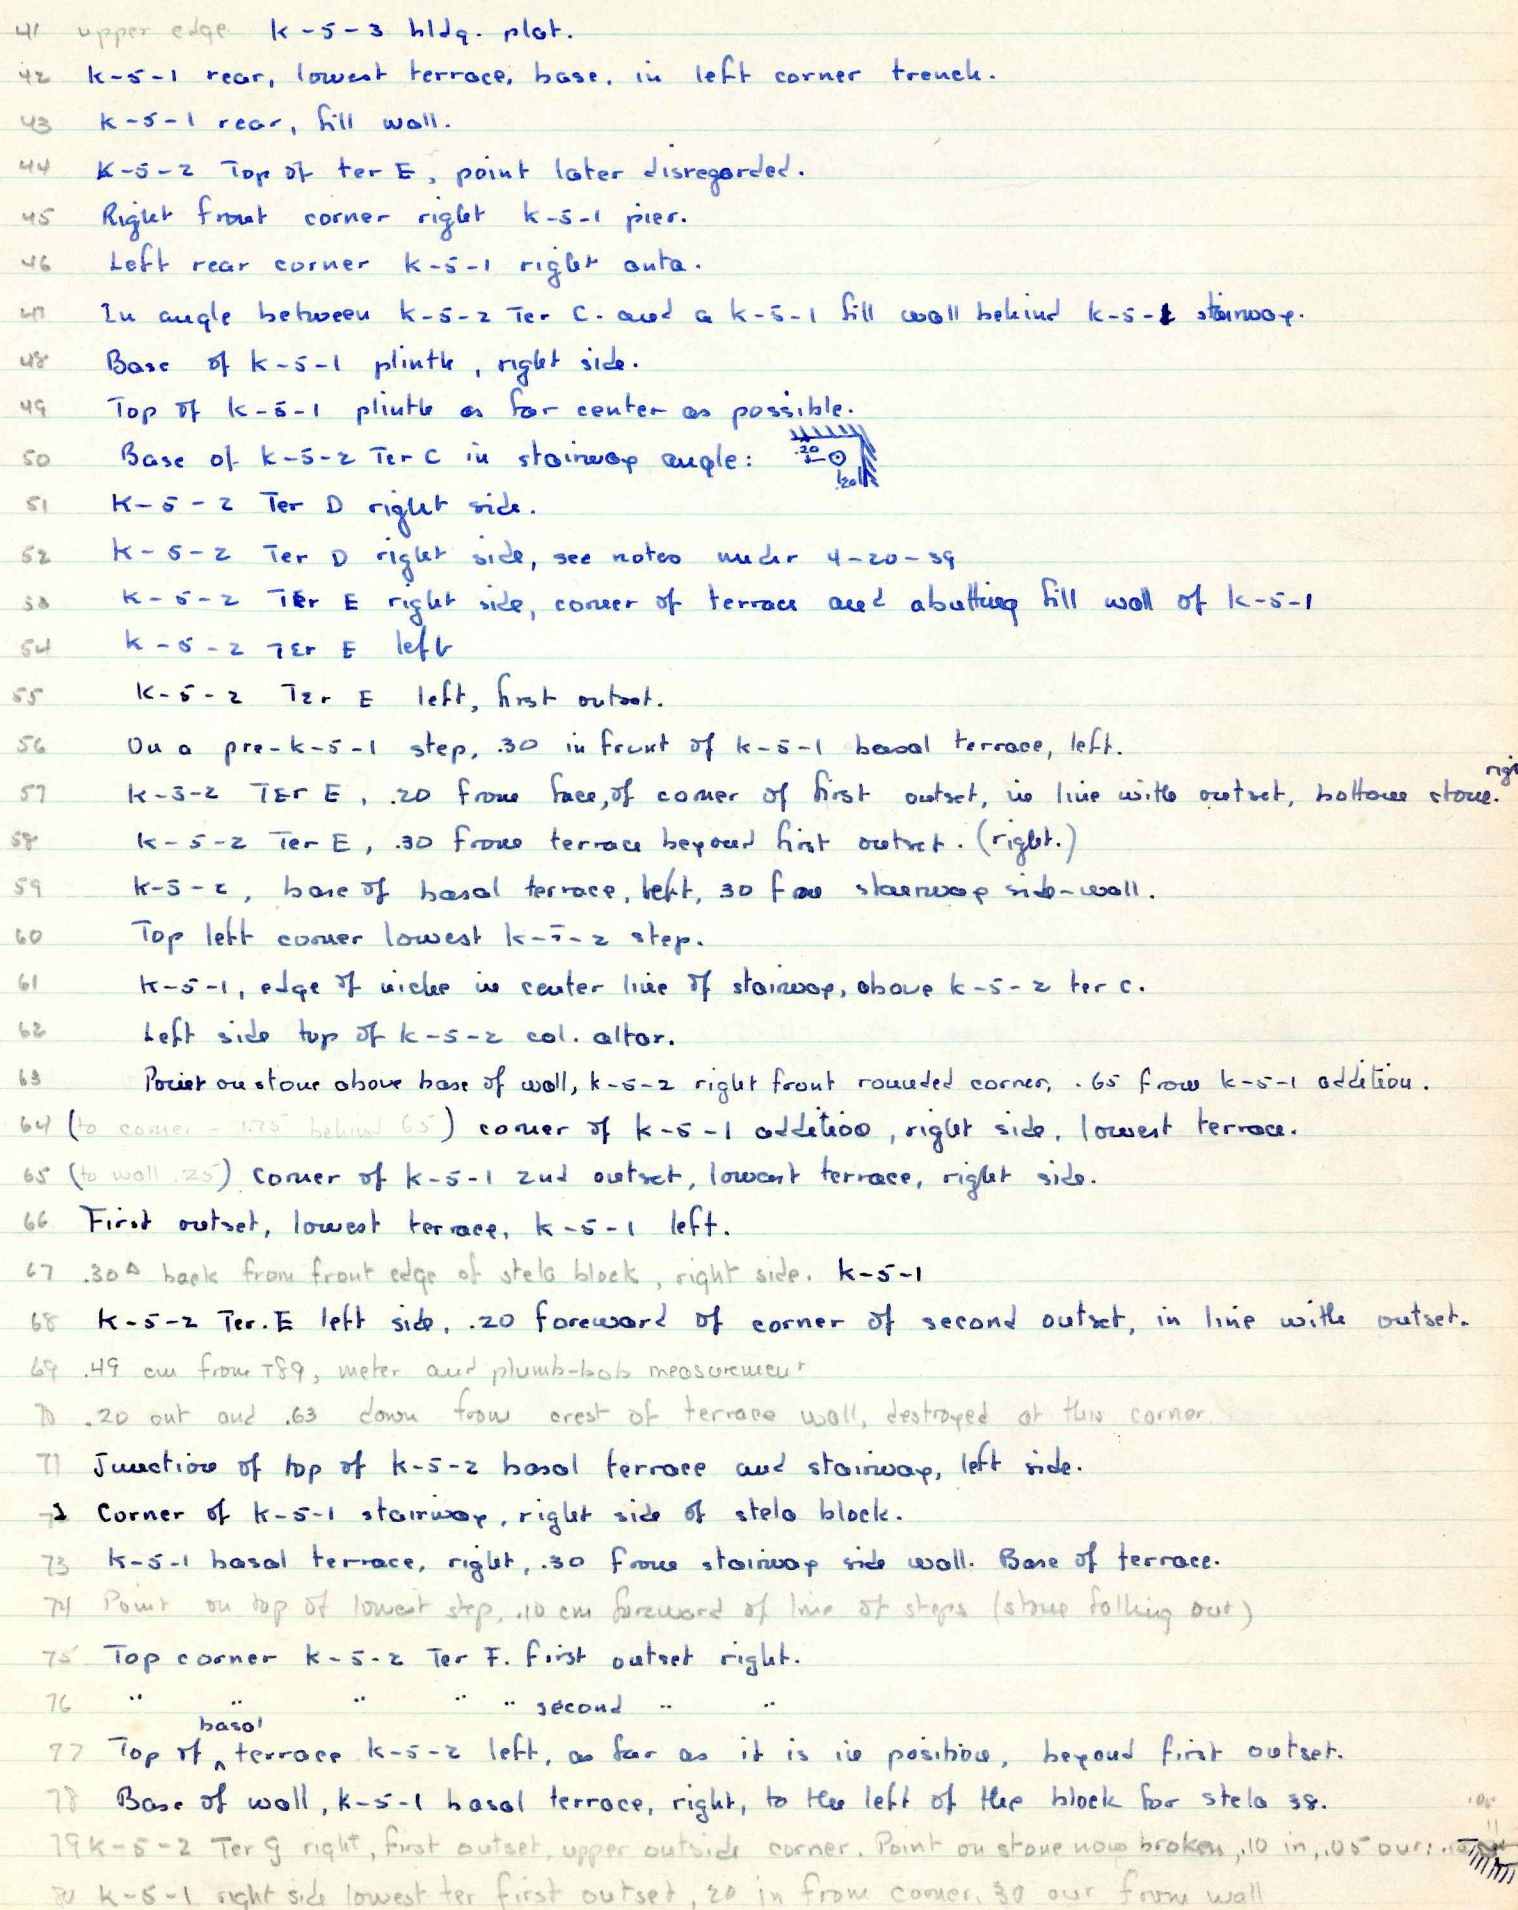 41 upper edge K-5-3 bldg. plat.
42 K-5-1 rear, lowest terrace, base, in left corner trench.
43 K-5-1 rear, fill wall.
44 K-5-2 Top of ter E, point later disregarded.
45 Right front corner right K-5-1 pier.
46 Left rear corner K-5-1 right anta.
47 In angle between K-5-2 Ter C. and a K-5-1 fill wall behind K-5-1 stairway.
48 Base of K-5-1 plinth, right side.
49 Top of K-5-1 plinth as far center as possible.
50 Base of K-5-2 Ter C in stairway angle: .20 .20
51 K-5-2 Ter D right side.
52 K-5-2 Ter D right side, see notes under 4-20-39
53 K-5-2 TEr E right side, corner of terrace and abutting fill wall of K-5-1
54 K-5-2 TEr E left
55 K-5-2 Ter E left, first outset.
56 On a pre-K-5-1 step, .30 in front of K-5-1 basal terrace, left.
57 K-5-2 TEr E, .20 from face, of corner of first outset, in line with outset, bottom stone. righ
58 K-5-2 Ter E, .30 from terrace beyond first outset. (right.)
59 K-5-2, base of basal terrace, left, 30 from stairway side-wall.
60 Top left corner lowest K-5-2 step.
61 K-5-1, edge of niche in center line of stairway, above K-5-2 ter C.
62 Left side top of K-5-2 col. altar.
63 Point on stone above base of wall, K-5-2 right front rounded corner, .65 from K-5-1 addition.
64 (to corner - 1.75 behind 65) corner of K-5-1 addition, right side, lowest terrace.
65 (to wall .25) Corner of K-5-1 2nd outset, lowest terrace, right side.
66 First outset, lowest terrace, K-5-1 left.
67 .30 back from front edge of stela block, right side. K-5-1
68 K-5-2 Ter. E left side, .20 foreward of corner of second outset, in line with outset.
69 .49 cm from T89, meter and plumb-bob measurement
70 .20 out and .63 down from crest of terrace wall, destroyed at this corner
71 Junction of top of K-5-2 basal terrace and stairway, left side.
Corner of K-5-1 stairway, right side of stela block.
73 K-5-1 basal terrace, right, .30 from stairway side wall. Base of terrace.
74 Point on top of lowest step, .10 cm foreward of line of steps (stone falling out)
75 Top corner K-5-2 Ter F. first outset right.
76 " " " " " second " "
77 Top of basal terrace K-5-2 left, as far as it is in position, beyond first outset.
78 Base of wall, K-5-1 basal terrace, right, to the left of the block for stela 38.
79 K-5-2 Ter G right, first outset, upper outside corner. Point on stone now broken, .10 in, .05 out:
80 K-5-1 right side lowest ter first outset, 20 in from corner, 30 out from wall